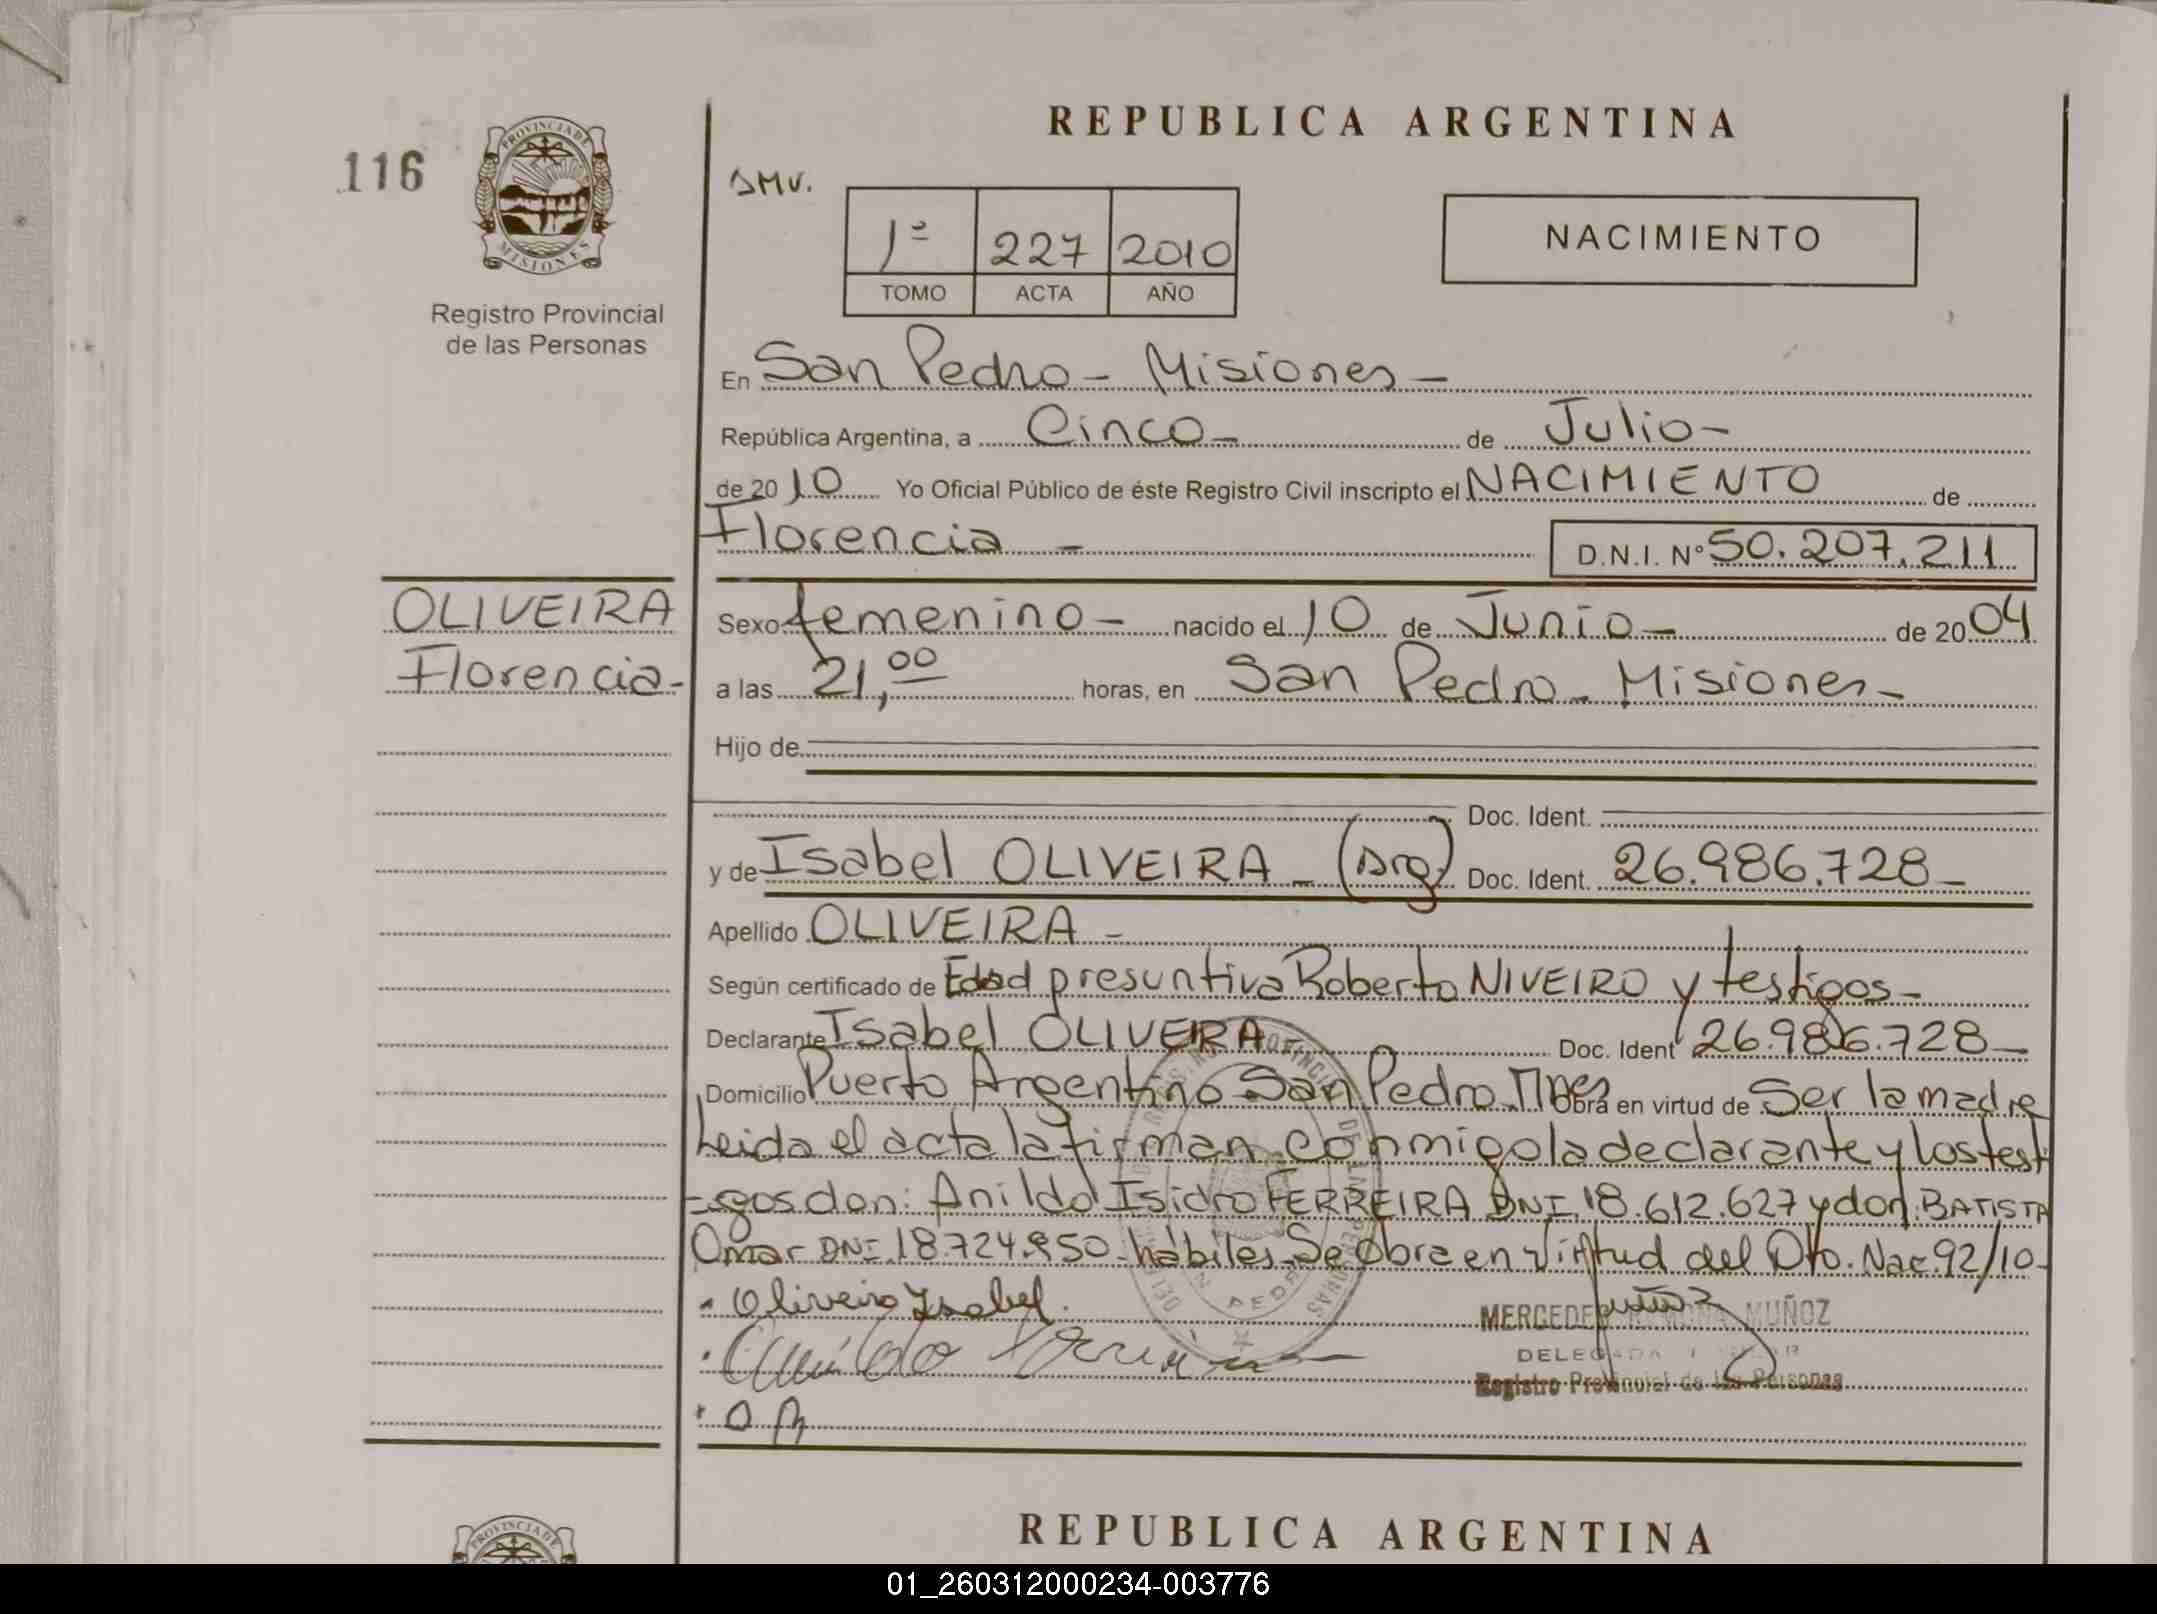 REPUBLICA ARGENTINA
116
PROVINCIA DE
MISIONES
Registro Provincial
de las Personas
SMV.
1º 227 2010
TOMO ACTA AÑO
NACIMIENTO
En San Pedro - Misiones -
República Argentina, a Cinco - de Julio -
de 2010 Yo Oficial Público de éste Registro Civil inscripto el NACIMIENTO de
Florencia - D.N.I. Nº 50.207.211
OLIVEIRA
Florencia -
Sexo femenino - nacido el 10 de Junio - de 2004
a las 21,00 horas, en San Pedro - Misiones -
Hijo de
Doc. Ident.
y de Isabel OLIVEIRA - (Arg) Doc. Ident. 26.986.728 -
Apellido OLIVEIRA -
Según certificado de Edad presuntiva Roberto NIVEIRO y testigos -
Declarante Isabel OLIVEIRA - Doc. Ident 26.986.728 -
Domicilio Puerto Argentino San Pedro Mnes Obra en virtud de Ser la madre
Leida el acta la firman conmigo la declarante y los testi
-gos don: Anildo Isidro FERREIRA DNI 18.612.627 y don: BATISTA
Omar DNI 18.724.950 - hábiles - Se Obra en virtud del Dto. Nac. 92/10 -
Oliveira Isabel.
MERCEDES RAMONA MUÑOZ
DELEGADA
Registro Provincial de las Personas
O B
REPUBLICA ARGENTINA
PROVINCIA DE
01_260312000234-003776